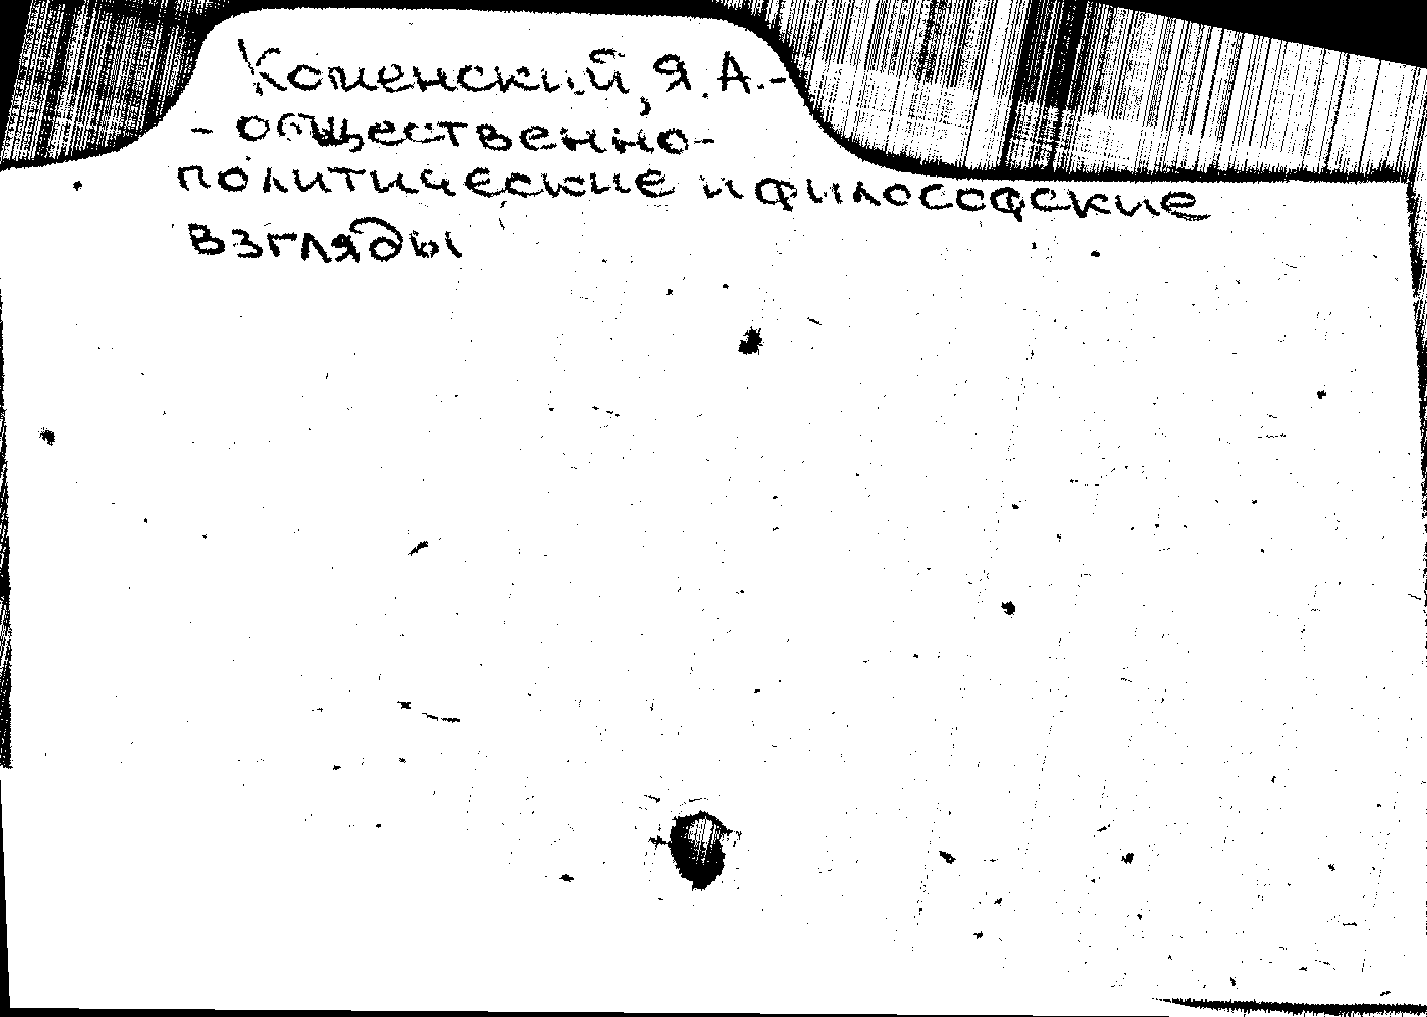 Коменский, Я.А.-
- общественно-
политические и философские
взгляды